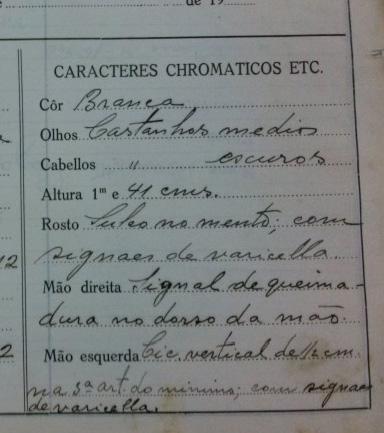 de 19
CARACTERES CHROMATICOS ETC.
Côr Branca
Olhos Castanhos medios
Cabellos " escuros
Altura 1m e 41 cms.
Rosto Sulco no mento; com
signaes de varicella
12
Mão direita Signal de queima-
dura no dorso da mão.
2
Mão esquerda Cic. vertical de 1/2 cm.
na 3ª art. do minimo; com signaes
de varicella.